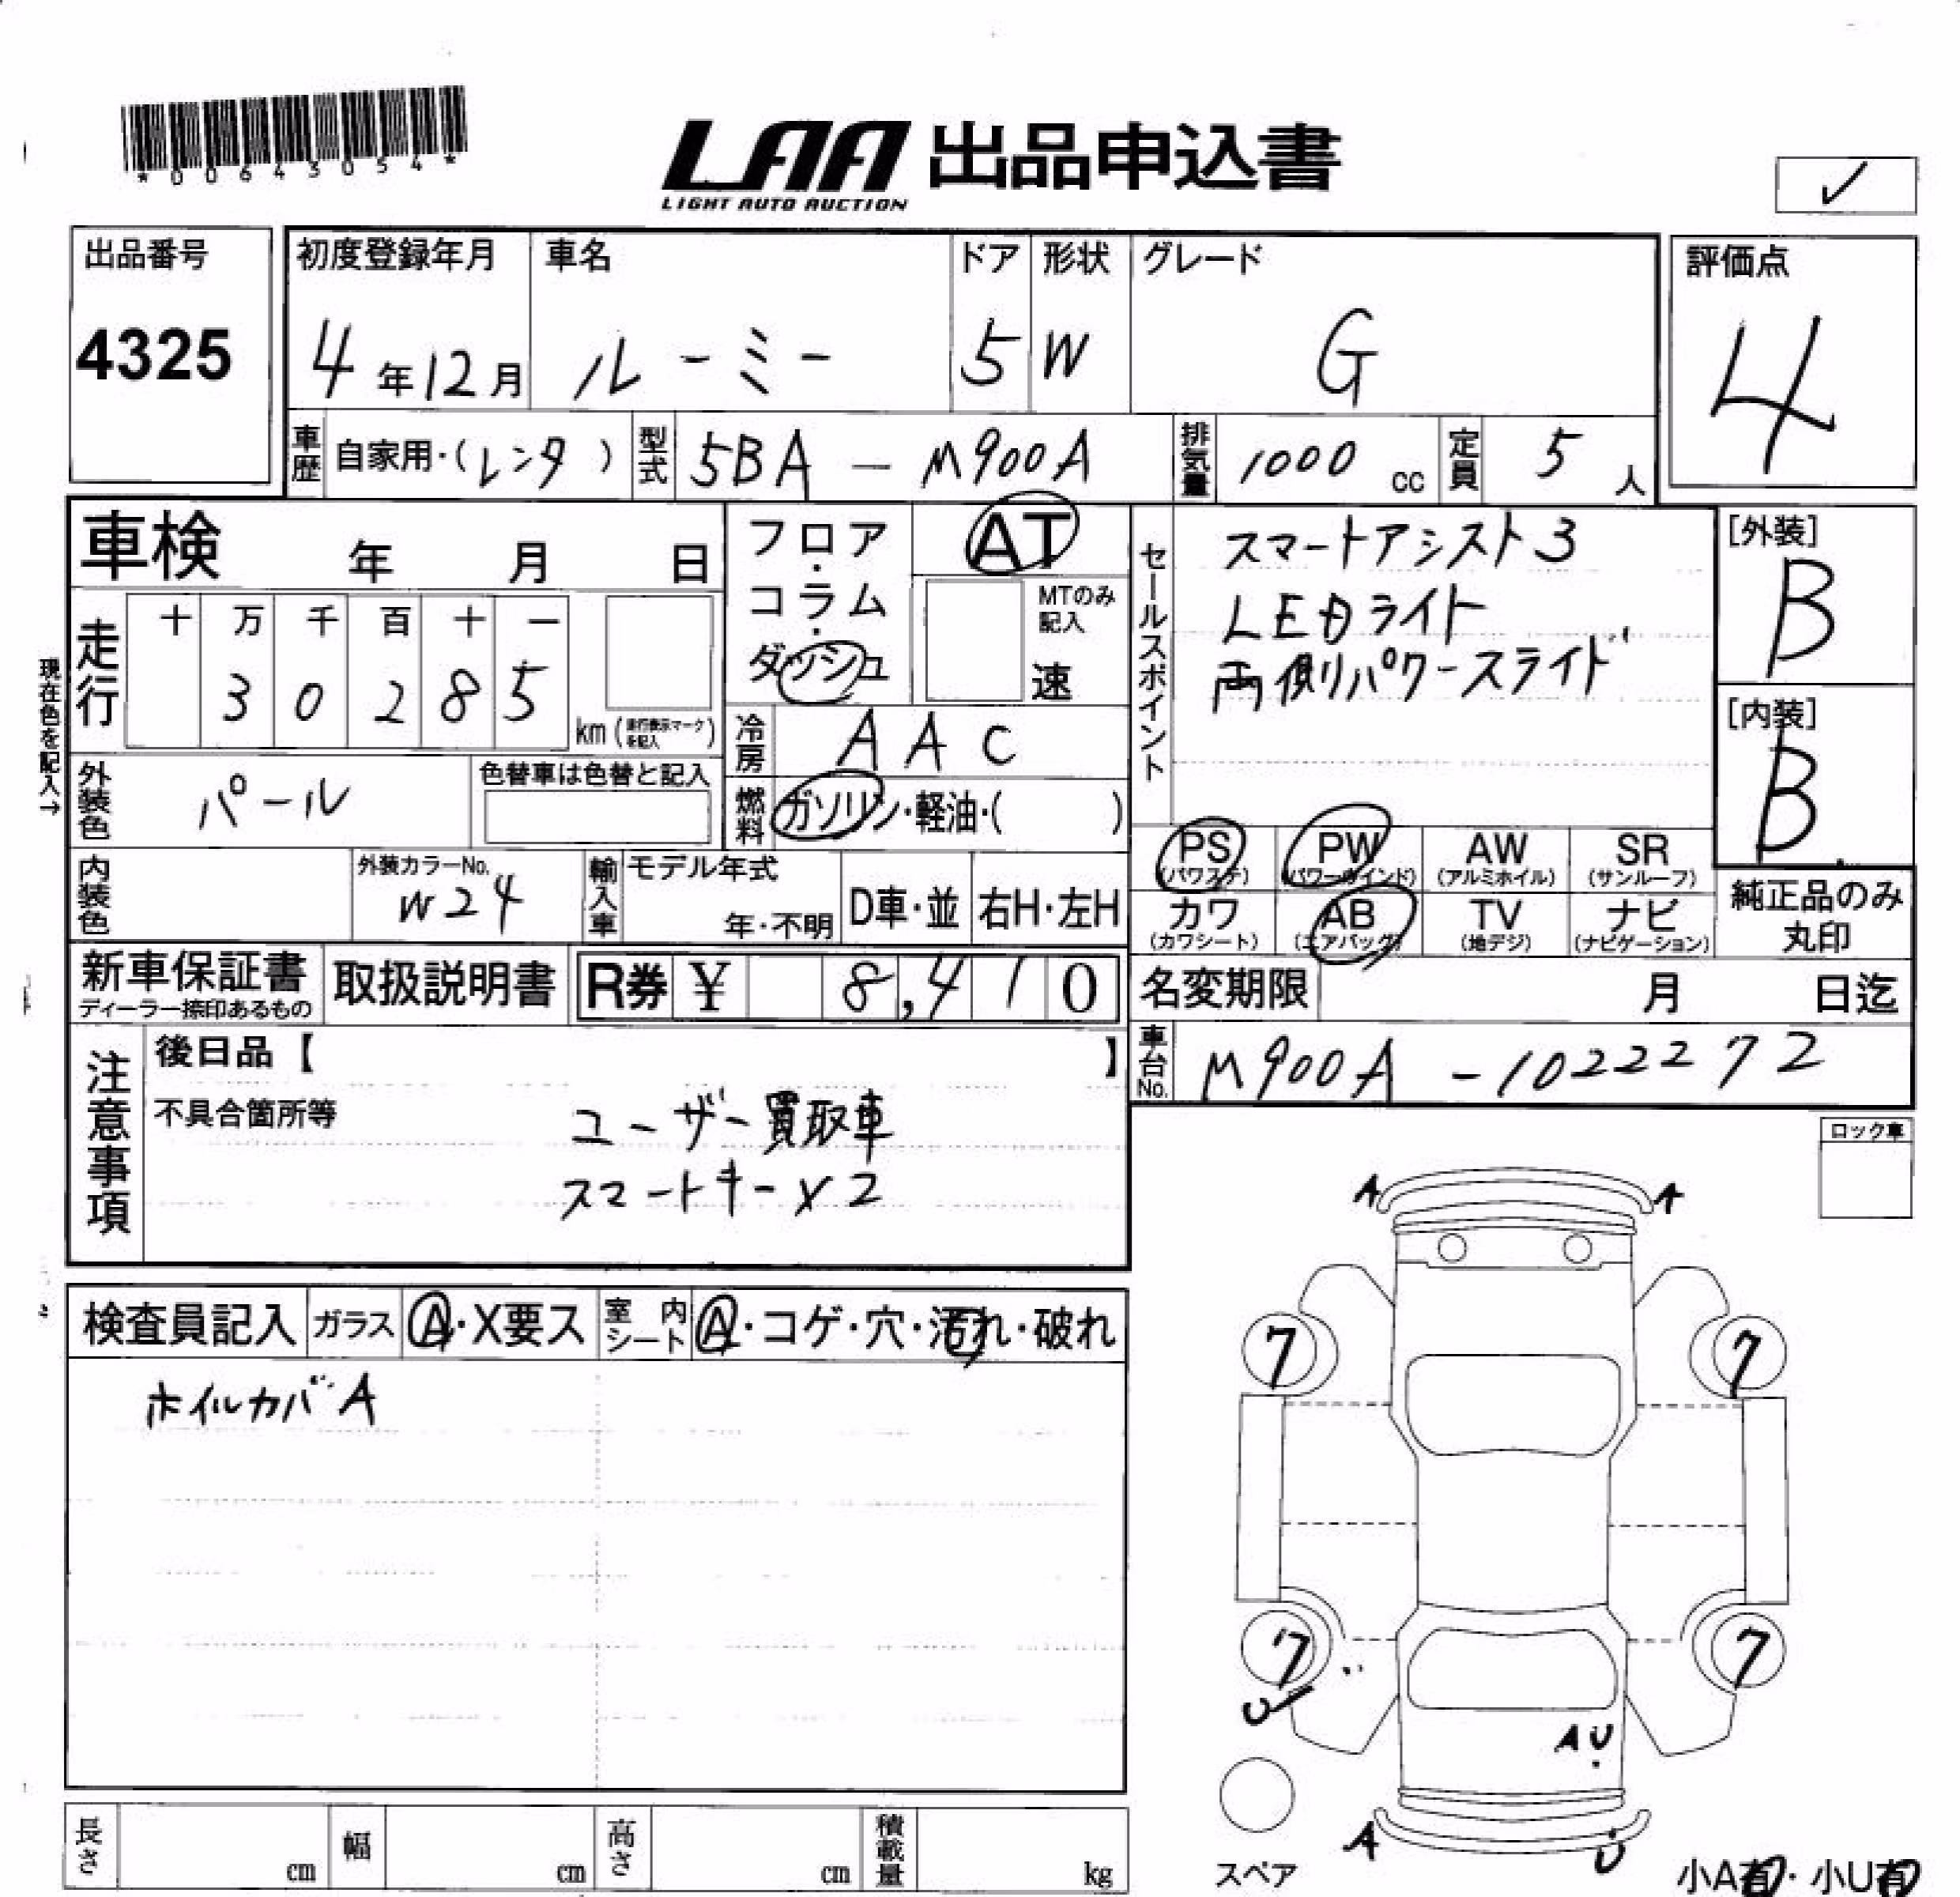 *00643054*
LAA 出品申込書
LIGHT AUTO AUCTION
✓
出品番号
4325
初度登録年月
4年12月
車名
ルーミー
ドア
5
形状
W
グレード
G
評価点
4
車歴 自家用・(レンタ)
型式 5BA - M900A
排気量 1000 cc
定員 5人
車検 年 月 日
フロア・コラム・ダッシュ
AT
MTのみ記入
速
セールスポイント
スマートアシスト3
LEDライト
両側パワースライド
[外装]
B
[内装]
B
現在色を記入→
走行
十 万 千 百 十 一
3 0 2 8 5
km(走行表示マークを記入)
冷房 AAC
外装色 パール
色替車は色替と記入
燃料 ガソリン・軽油・( )
内装色
外装カラーNo.
W24
輸入車
モデル年式
年・不明
D車・並
右H・左H
PS (パワステ)
PW (パワーウインド)
AW (アルミホイル)
SR (サンルーフ)
カワ (カワシート)
AB (エアバッグ)
TV (地デジ)
ナビ (ナビゲーション)
純正品のみ丸印
新車保証書
ディーラー捺印あるもの
取扱説明書
R券 ¥ 8,410
名変期限 月 日迄
車台No. M900A-1022272
注意事項
後日品【 】
不具合箇所等
ユーザー買取車
スマートキーX2
ロック車
検査員記入
ガラス A・X要ス
室内シート A・コゲ・穴・汚れ・破れ
ホイルカバA
A A
7 7
7 7
U
AU
A U
スペア
小A有・小U有
長さ cm
幅 cm
高さ cm
積載量 kg